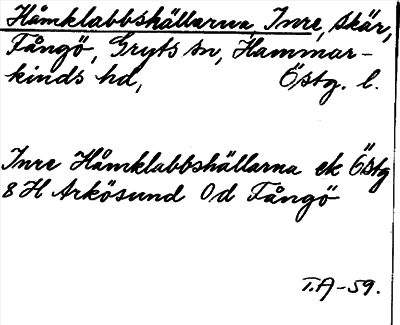 Håmklabbshällarna, Inre, skär,
Fångö, Gryts sn, Hammar-
kinds hd, Östg. l.
Inre Håmklabbshällarna ek Östg
8 H Arkösund 0d Fångö
T.A-59.